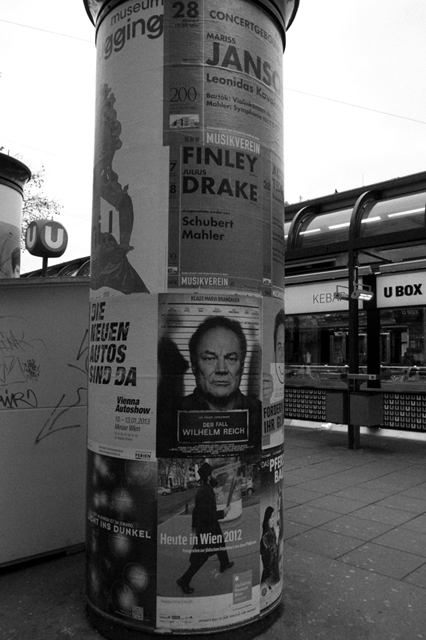 museum
gging
28
CONCERTGEBO
MARISS
JANSO
Leonidas Kava
200
Bartók: Violinkonzert
Mahler: Symphonie
MUSIKVEREIN
FINLEY
JULIUS
DRAKE
Schubert
Mahler
MUSIKVEREIN
U
KEBA
U BOX
DIE
NEUEN
AUTOS
SIND DA
Vienna
Autoshow
10. – 13.01.2013
Messe Wien
FERIEN
KLAUS MARIA BRANDAUER
DER FALL
WILHELM REICH
FORDER
IHR
HT INS DUNKEL
Heute in Wien 2012